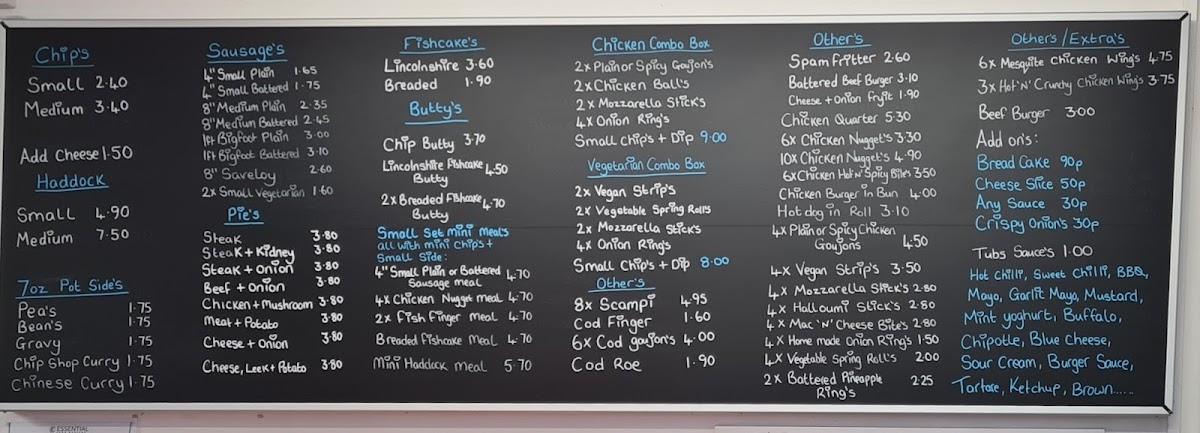 Chip's
Small 2.40
Medium 3.40
Add Cheese 1.50
Haddock
Small 4.90
Medium 7.50
7oz Pot Side's
Pea's 1.75
Bean's 1.75
Gravy 1.75
Chip Shop Curry 1.75
Chinese Curry 1.75
Sausage's
4" Small Plain 1.65
4" Small Battered 1.75
8" Medium Plain 2.35
8" Medium Battered 2.45
1ft Bigfoot Plain 3.00
1ft Bigfoot Battered 3.10
8" Saveloy 2.60
2x Small Vegetarian 1.60
Pie's
Steak 3.80
Steak + Kidney 3.80
Steak + Onion 3.80
Beef + Onion 3.80
Chicken + Mushroom 3.80
Meat + Potato 3.80
Cheese + Onion 3.80
Cheese, Leek + Potato 3.80
Fishcake's
Lincolnshire 3.60
Breaded 1.90
Butty's
Chip Butty 3.70
Lincolnshire Fishcake 4.50
Butty
2x Breaded Fishcake 4.70
Butty
Small Set mini meal's
all with mini chip's +
Small Side:
4" Small Plain or Battered 4.70
Sausage meal
4x Chicken Nugget meal 4.70
2x Fish Finger meal 4.70
Breaded Fishcake meal 4.70
Mini Haddock meal 5.70
Chicken Combo Box
2x Plain or Spicy Goujon's
2x Chicken Ball's
2x Mozzarella Stick's
4x Onion Ring's
Small chip's + Dip 9.00
Vegetarian Combo Box
2x Vegan Strip's
2x Vegetable Spring Roll's
2x Mozzarella Stick's
4x Onion Ring's
Small Chip's + Dip 8.00
Other's
8x Scampi 4.95
Cod Finger 1.60
6x Cod goujon's 4.00
Cod Roe 1.90
Other's
Spam Fritter 2.60
Battered Beef Burger 3.10
Cheese + Onion Fryit 1.90
Chicken Quarter 5.30
6x Chicken Nugget's 3.30
10x Chicken Nugget's 4.90
6x Chicken Hot'n'Spicy Bites 3.50
Chicken Burger in Bun 4.00
Hot dog in Roll 3.10
4x Plain or Spicy Chicken
Goujons 4.50
4x Vegan Strip's 3.50
4x Mozzarella Stick's 2.80
4x Halloumi Stick's 2.80
4x Mac 'N' Cheese Bite's 2.80
4x Home made Onion Ring's 1.50
4x Vegetable Spring Roll's 2.00
2x Battered Pineapple 2.25
Ring's
Other's / Extra's
6x Mesquite Chicken Wing's 4.75
3x Hot'N'Crunchy Chicken Wing's 3.75
Beef Burger 3.00
Add on's:
Bread Cake 90p
Cheese Slice 50p
Any Sauce 30p
Crispy Onion's 30p
Tubs Sauce's 1.00
Hot Chilli, Sweet Chilli, BBQ,
Mayo, Garlit Mayo, Mustard,
Mint yoghurt, Buffalo,
Chipotle, Blue Cheese,
Sour Cream, Burger Sauce,
Tartare, Ketchup, Brown.....
ESSENTIAL